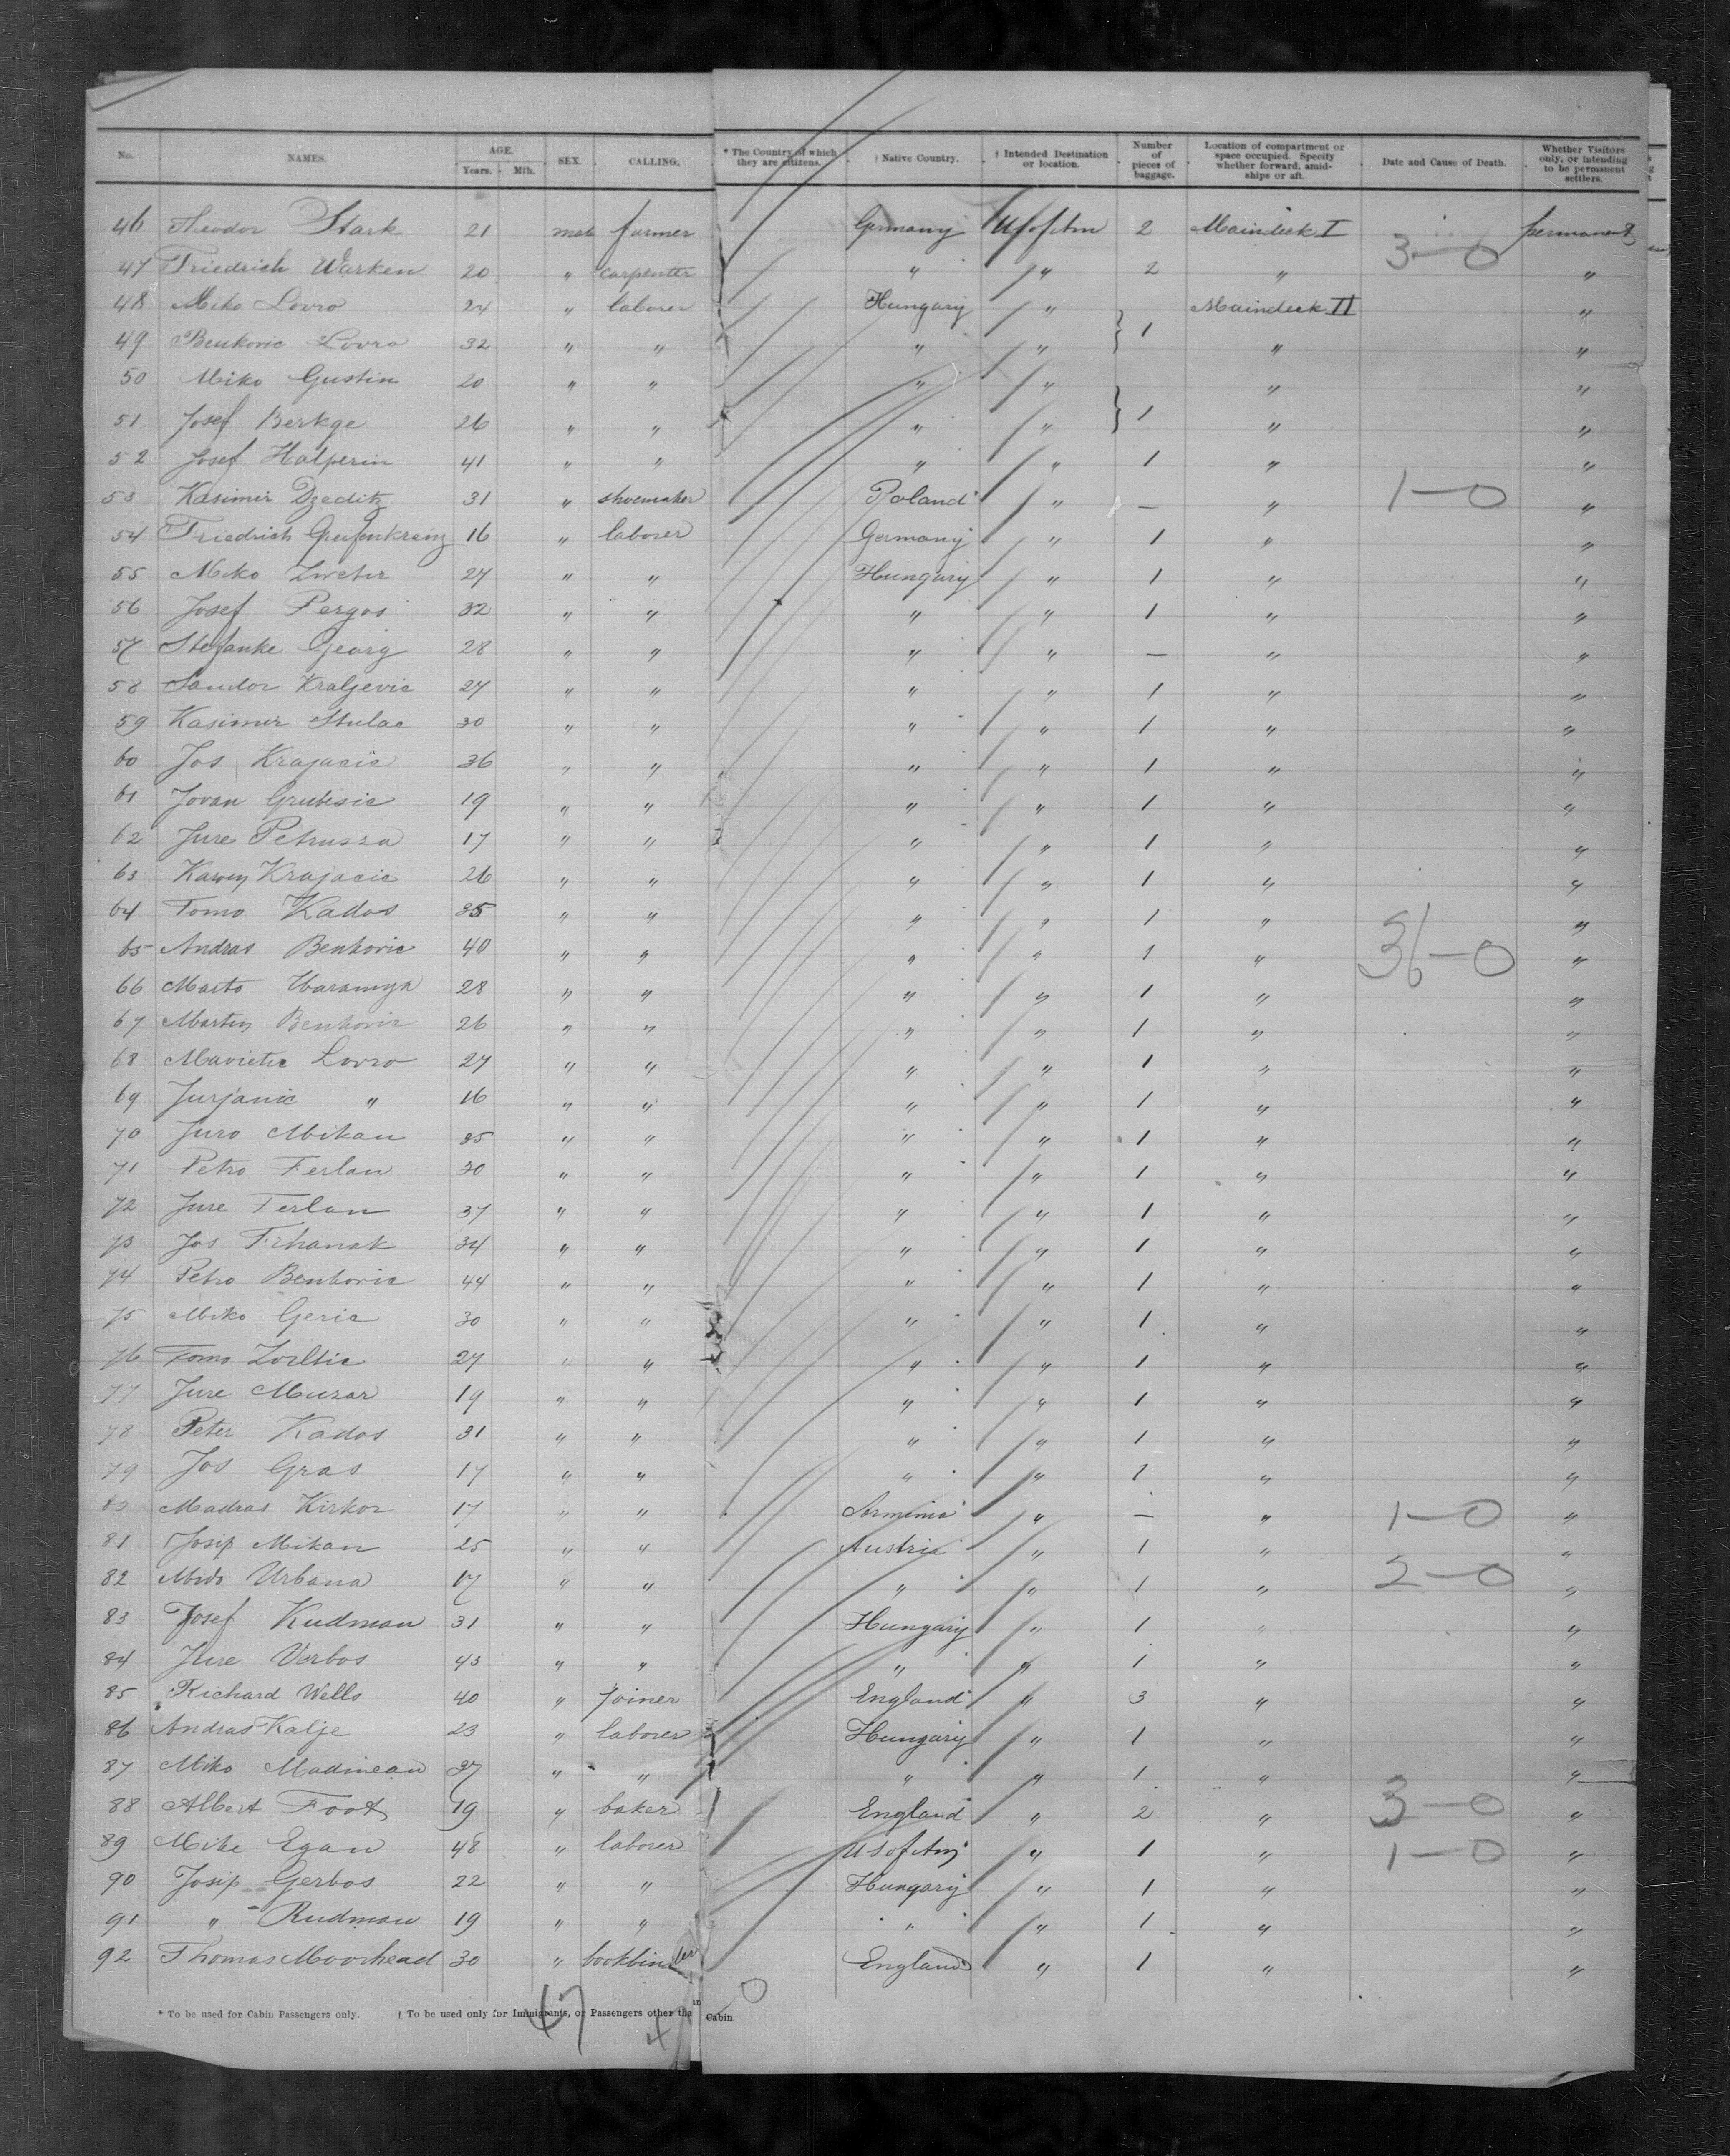 No. NAMES. AGE. Years. Mth. SEX. CALLING. * The Country of which they are citizens. † Native Country. † Intended Destination or location. Number of pieces of baggage. Location of compartment or space occupied. Specify whether forward, amidships or aft. Date and Cause of Death. Whether Visitors only, or intending to be permanent settlers.
46 Theodor Stark 21 male farmer Germany U S of Am 2 Maindeck I permanent
3-0
47 Friedrich Warken 20 " carpenter " " 2 " "
48 Miko Lovro 24 " laborer Hungary " Maindeck II "
49 Benkovic Lovro 32 " " " " } 1 " "
50 Miko Gustin 20 " " " " " "
51 Josef Berkge 26 " " " " } 1 " "
52 Josef Halperin 41 " " " " 1 " "
53 Kasimir Dzeditz 31 " shoemaker Poland " — " 1-0 "
54 Friedrich 16 " laborer Germany " 1 " "
55 Miko 27 " " Hungary " 1 " "
56 Josef Pergos 32 " " " " 1 " "
57 Stefanke Georg 28 " " " " — " "
58 Sandor Kraljevic 27 " " " " 1 " "
59 Kasimir Stulac 30 " " " " 1 " "
60 Jos Krajacic 36 " " " " 1 " "
61 Jovan Grubesic 19 " " " " 1 " "
62 Jure Petrussa 17 " " " " 1 " "
63 Krajacic 26 " " " " 1 " "
64 Tomo Kados 35 " " " " 1 " "
65 Andras Benkovic 40 " " " " 1 " 36-0 "
66 Marto 28 " " " " 1 " "
67 Martin Benkovic 26 " " " " 1 " "
68 Mavretic Lovro 27 " " " " 1 " "
69 Jurjanic " 16 " " " " 1 " "
70 Juro Mikan 35 " " " " 1 " "
71 Petro Ferlan 30 " " " " 1 " "
72 Jure Ferlan 37 " " " " 1 " "
73 Jos 34 " " " " 1 " "
74 Petro Benkovic 44 " " " " 1 " "
75 Miko Geric 30 " " " " 1 " "
76 Tomo 27 " " " " 1 " "
77 Jure Musar 19 " " " " 1 " "
78 Peter Kados 31 " " " " 1 " "
79 Jos Gras 17 " " " " 1 " "
80 Madras Kirkor 17 " " Armenia " — " 1-0 "
81 Josip Mikan 25 " " Austria " 1 " "
82 Urbana 17 " " " " 1 " 2-0 "
83 Josef Kudman 31 " " Hungary " 1 " "
84 Jure Verbos 43 " " " " 1 " "
85 Richard Wells 40 " joiner England " 3 " "
86 Andras Kalje 23 " laborer Hungary " 1 " "
87 Miko Madinean 37 " " " " 1 " "
88 Albert Foot 19 " baker England " 2 " 3-0 "
89 Mike Egan 48 " laborer U S of Am " 1 " 1-0 "
90 Josip Gerbos 22 " " Hungary " 1 " "
91 " Rudman 19 " " " " 1 " "
92 Thomas Moorhead 30 " bookbinder England " 1 " "
* To be used for Cabin Passengers only. † To be used only for Immigrants, or Passengers other than Cabin.